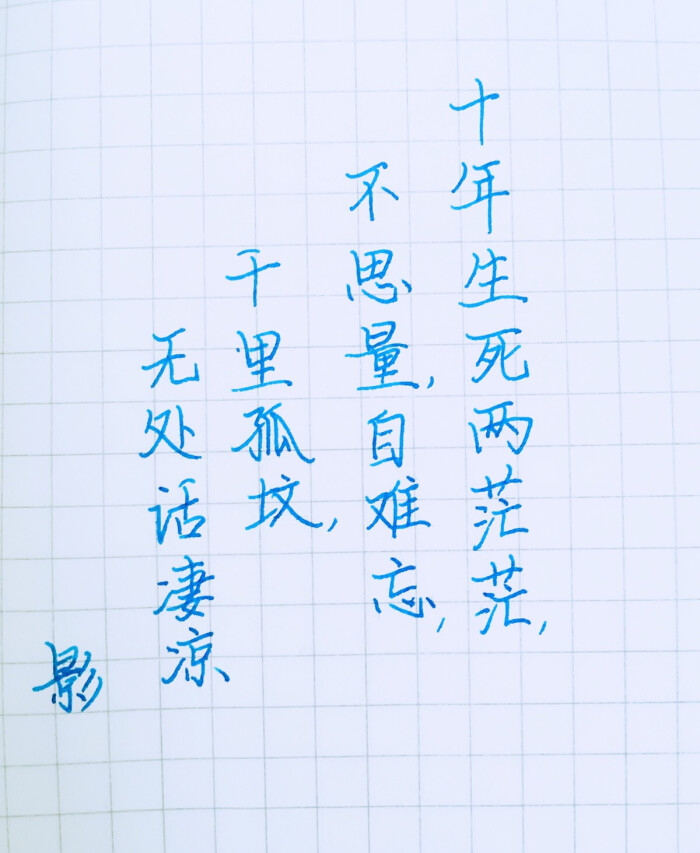 十年生死两茫茫,
不思量,自难忘,
千里孤坟,
无处话凄凉
影